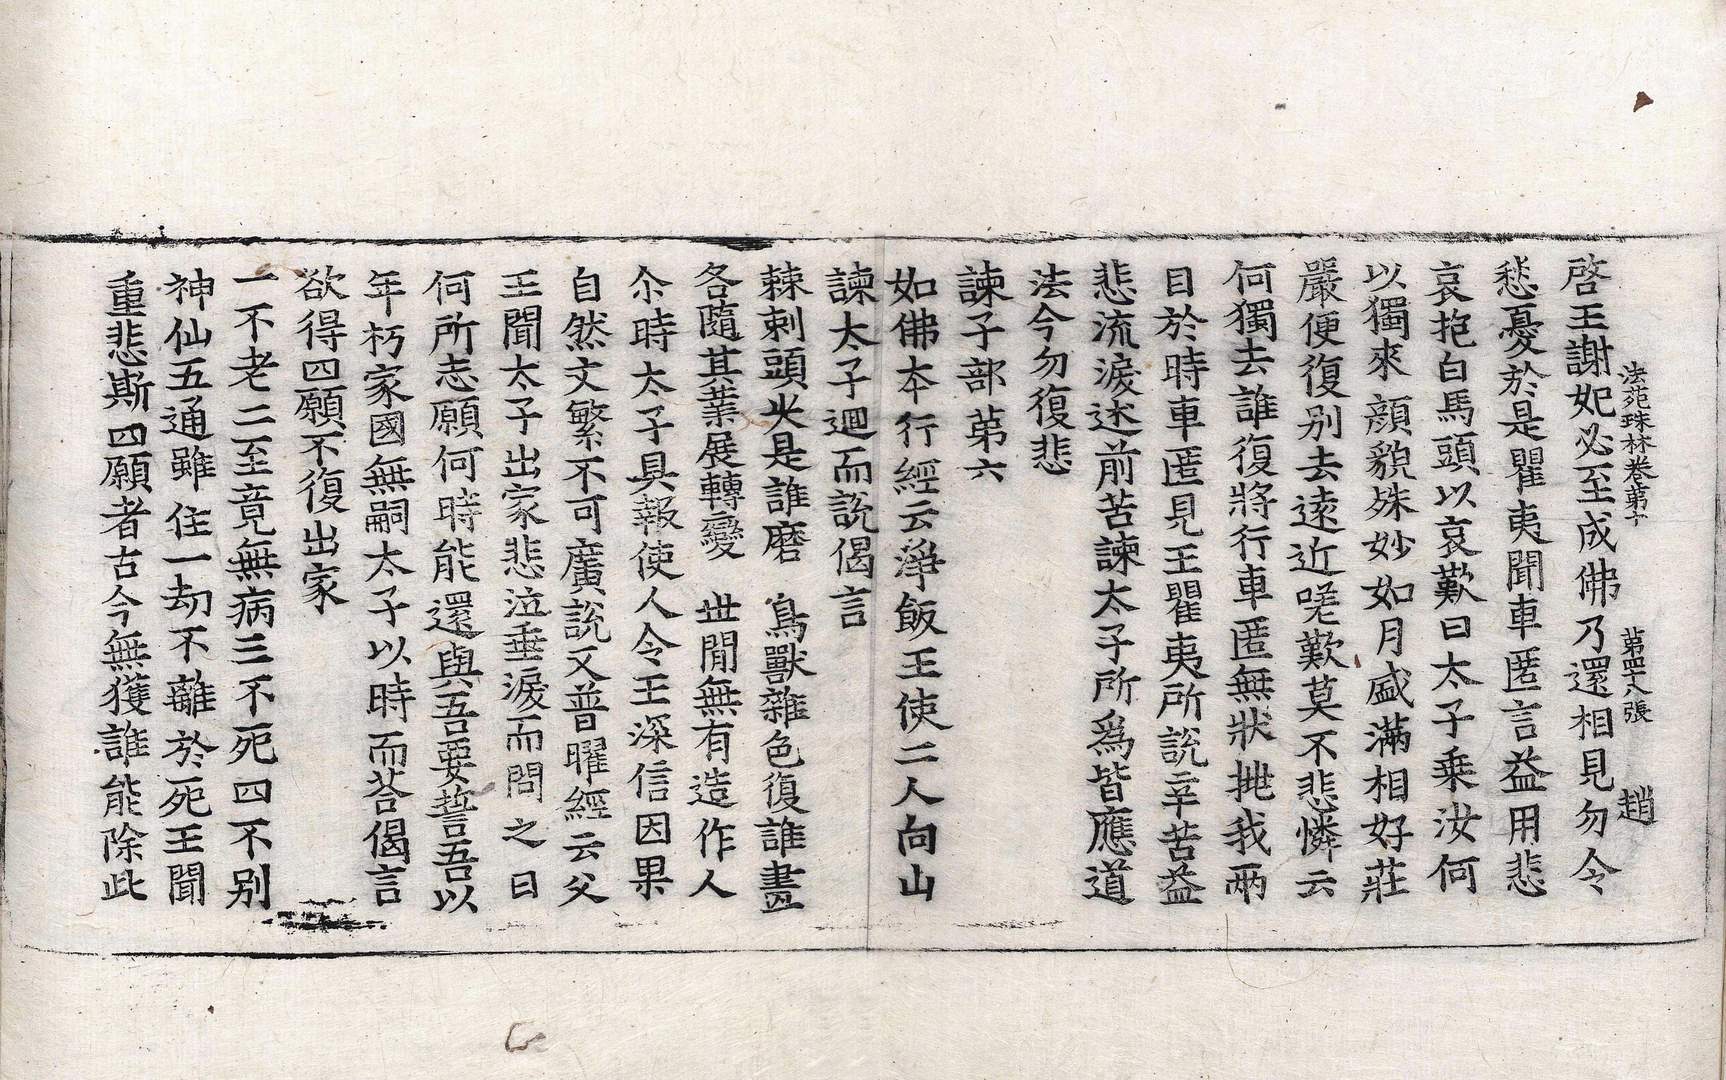 法苑珠林卷第十　第四十八張　趙
啓王謝妃必至成佛乃還相見勿令
愁憂於是瞿夷聞車匿言益用悲
哀抱白馬頭以哀歎曰太子乗汝何
以獨來顔貌殊妙如月盛滿相好莊
嚴便復別去遠近嗟歎莫不悲憐云
何獨去誰復將行車匿無狀抛我兩
目於時車匿見王瞿夷所說辛苦益
悲流淚述前苦諫太子所爲皆應道
法今勿復悲
諫子部第六
如佛本行經云淨飯王使二人向山
諫太子迴而說偈言
棘刺頭尖是誰磨　鳥獸雜色復誰畫
各隨其業展轉變　世閒無有造作人
尒時太子具報使人令王深信因果
自然文繁不可廣說又普曜經云父
王聞太子出家悲泣垂淚而問之曰
何所志願何時能還與吾要誓吾以
年朽家國無嗣太子以時而荅偈言
欲得四願不復出家
一不老二至竟無病三不死四不別
神仙五通雖住一劫不離於死王聞
重悲斯四願者古今無獲誰能除此